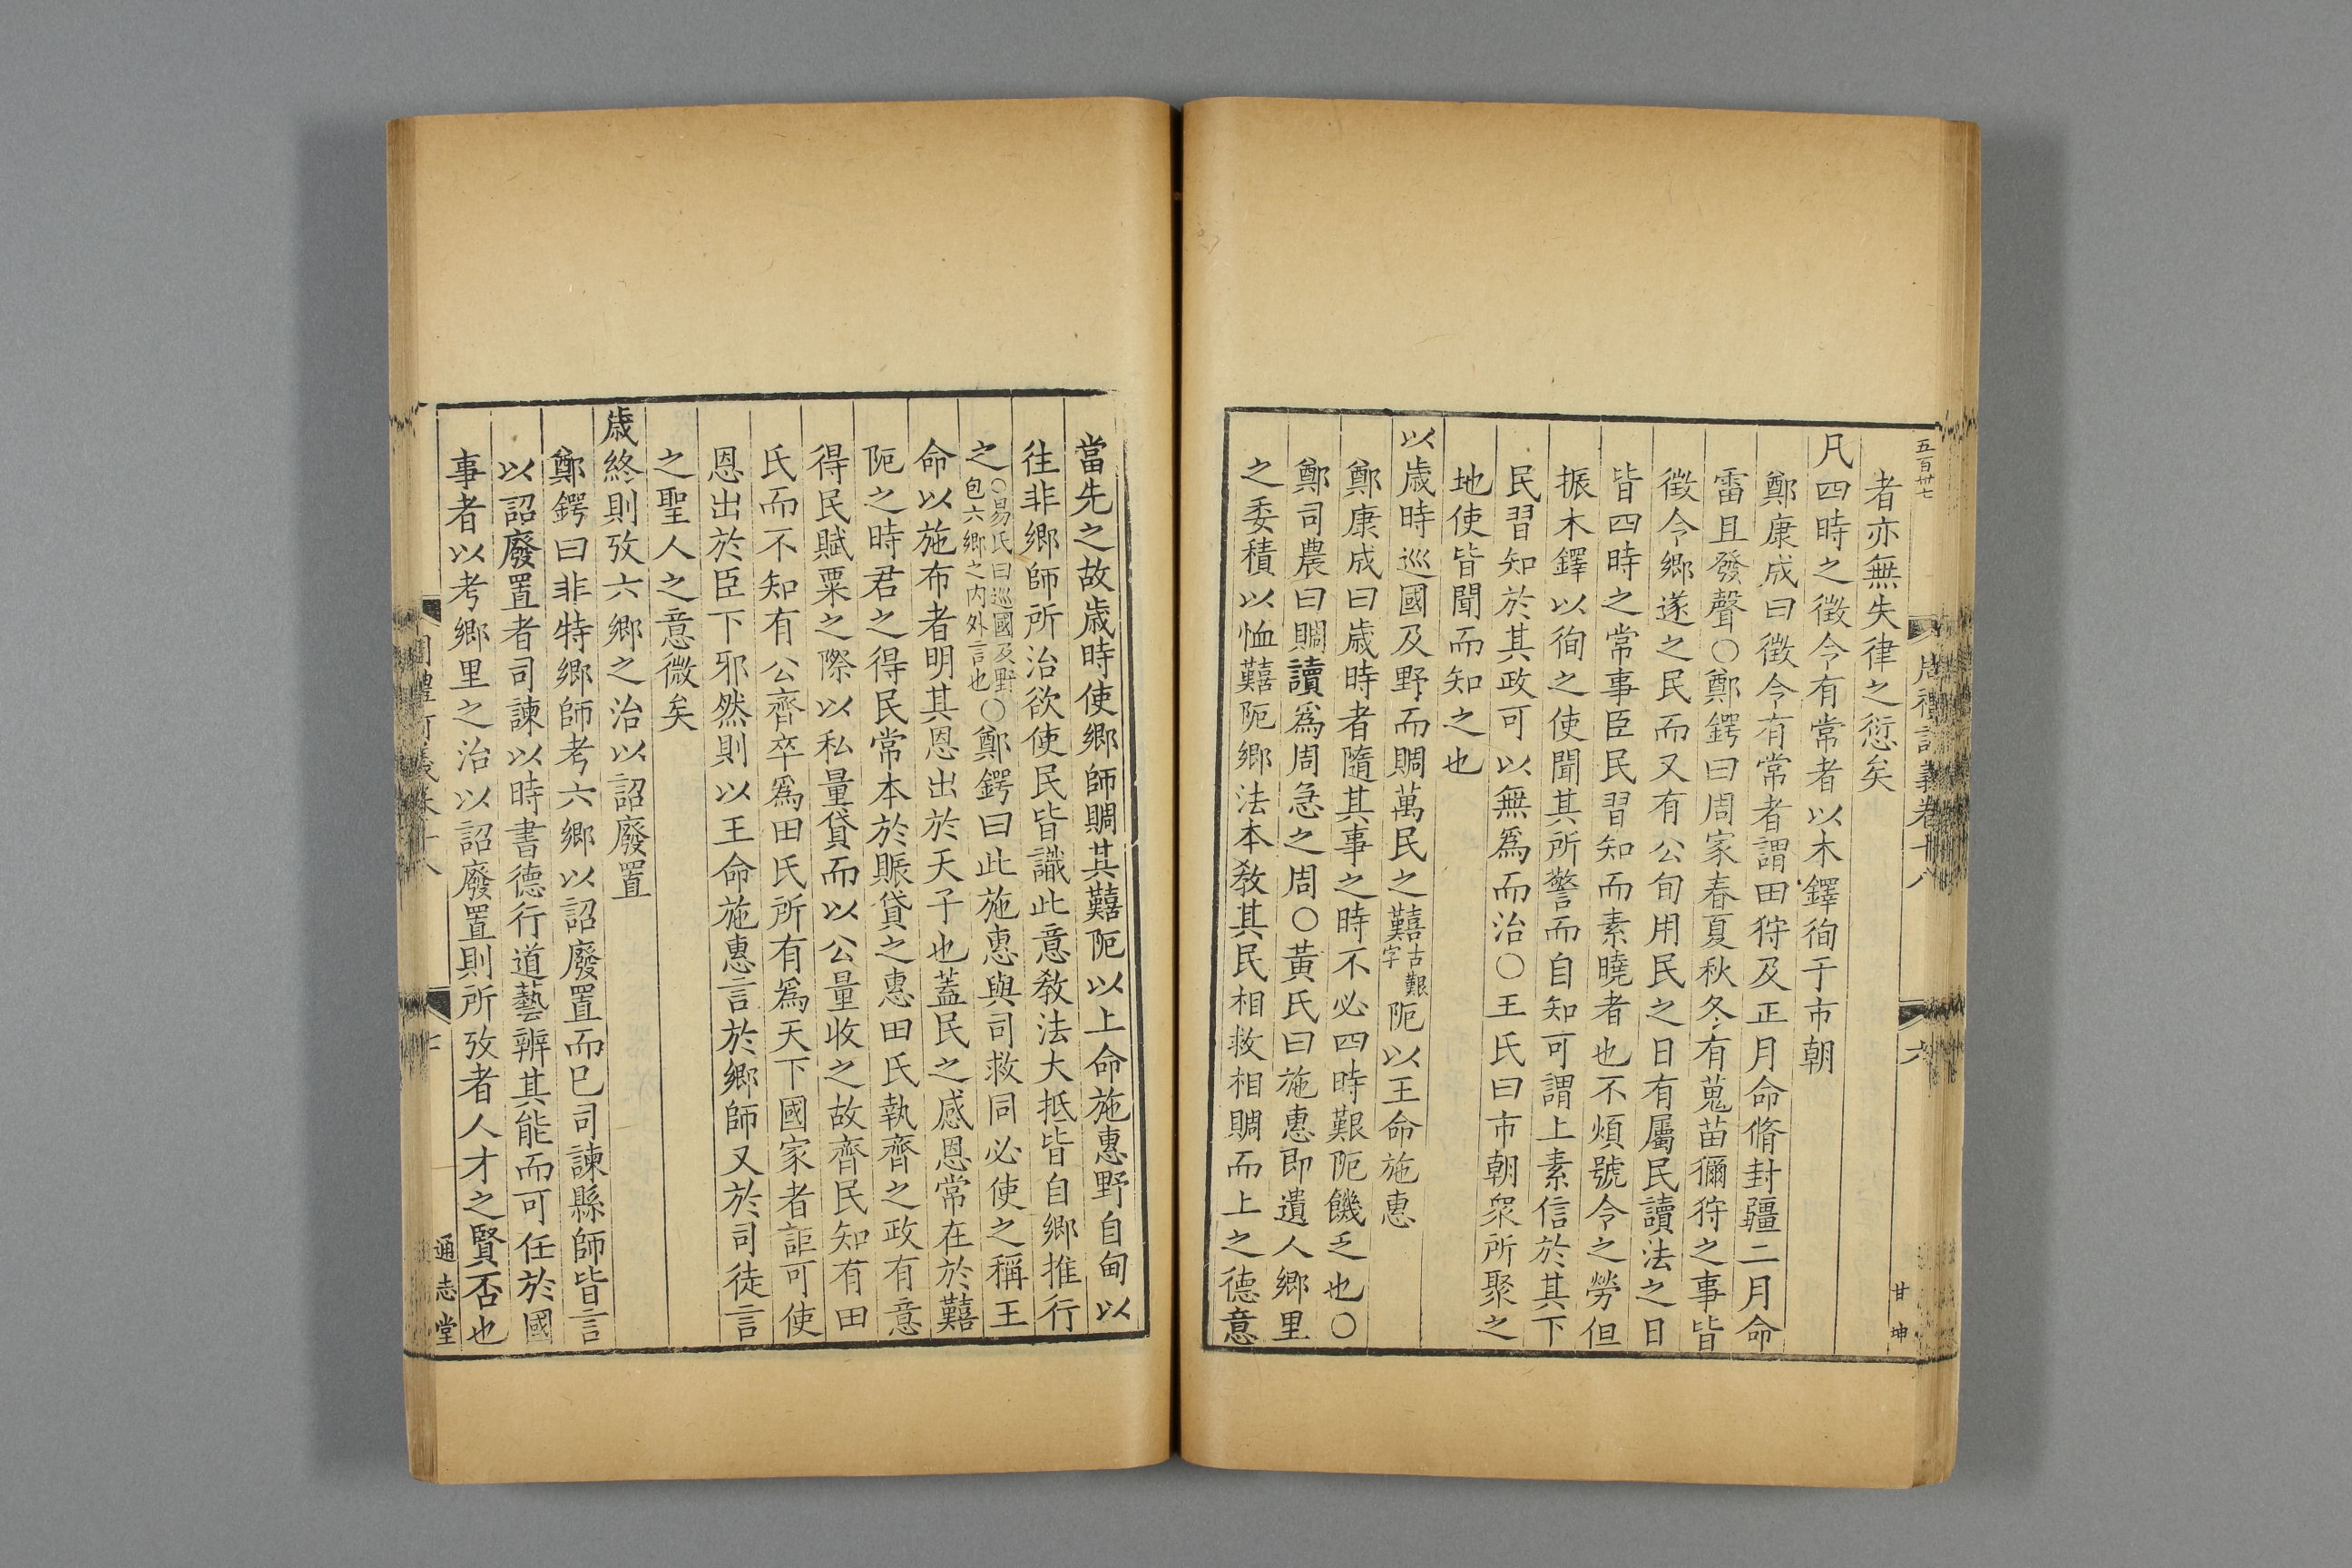 五百卅七
周禮訂義卷十八
六
甘坤
者亦無失律之愆矣
凡四時之徴令有常者以木鐸徇于市朝
鄭康成曰徴令有常者謂田狩及正月命脩封疆二月命
雷且發聲○鄭鍔曰周家春夏秋冬有蒐苗獮狩之事皆
徴令鄉遂之民而又有公旬用民之日有屬民讀法之日
皆四時之常事臣民習知而素曉者也不煩號令之勞但
振木鐸以徇之使聞其所警而自知可謂上素信於其下
民習知於其政可以無爲而治○王氏曰市朝衆所聚之
地使皆聞而知之也
以歳時巡國及野而賙萬民之囏古艱字阨以王命施惠
鄭康成曰歳時者隨其事之時不必四時艱阨饑乏也○
鄭司農曰賙讀爲周急之周○黃氏曰施惠即遺人鄉里
之委積以恤囏阨鄉法本敎其民相救相賙而上之德意
當先之故歳時使鄉師賙其囏阨以上命施惠野自甸以
往非鄉師所治欲使民皆識此意敎法大抵皆自鄉推行
之○易氏曰巡國及野包六鄉之内外言也○鄭鍔曰此施惠與司救同必使之稱王
命以施布者明其恩出於天子也蓋民之感恩常在於囏
阨之時君之得民常本於賑貸之惠田氏執齊之政有意
得民賦粟之際以私量貸而以公量收之故齊民知有田
氏而不知有公齊卒爲田氏所有爲天下國家者詎可使
恩出於臣下邪然則以王命施惠言於鄉師又於司徒言
之聖人之意微矣
歳終則攷六鄉之治以詔廢置
鄭鍔曰非特鄉師考六鄉以詔廢置而巳司諫縣師皆言
以詔廢置者司諫以時書德行道藝辨其能而可任於國
事者以考鄉里之治以詔廢置則所攷者人才之賢否也
通志堂